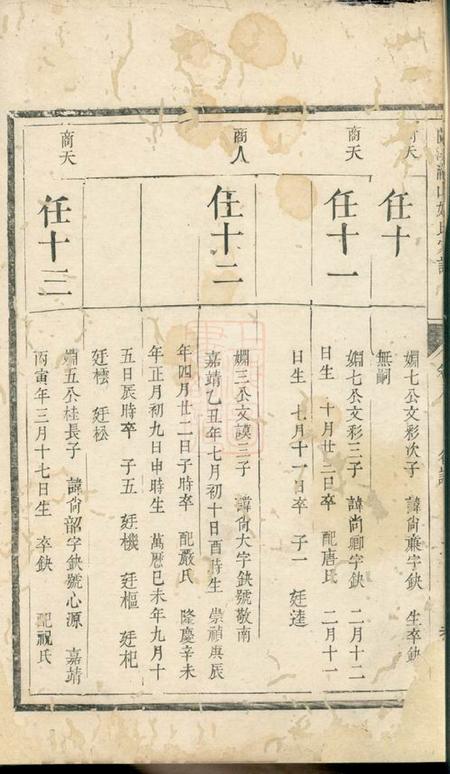 商天
任十
嫺七公文彩次子 諱尚廉字缺 生卒缺
無嗣
商天
任十一
嫺七公文彩三子 諱尚卿字缺 二月十二
日生 十月廿二日卒 配唐氏 二月十一
日生 七月十一日卒 子一 廷達
商人
任十二
嫺三公文謨三子 諱尚大字缺號敬南
嘉靖乙丑年七月初十日酉時生 崇禎庚辰
年四月廿二日子時卒 配嚴氏 隆慶辛未
年正月初九日申時生 萬曆己未年九月十
五日辰時卒 子五 廷機 廷樞 廷杞
廷橒 廷松
商天
任十三
嫺五公桂長子 諱尚韶字缺號心源 嘉靖
丙寅年三月十七日生 卒缺 配祝氏